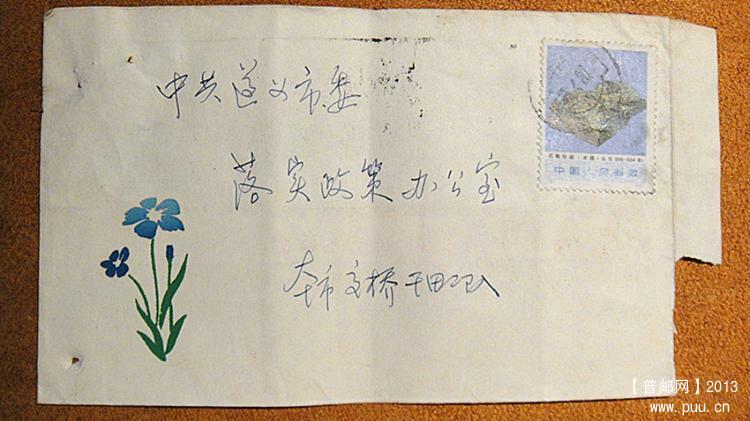 中共遵义市委
落实政策办公室
本市高桥
中国人民邮政
【普邮网】2013
www.puu.cn